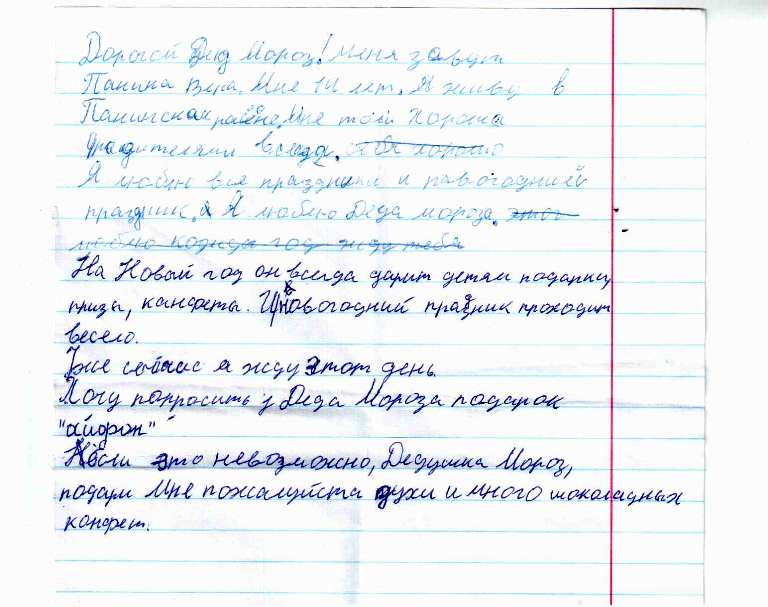 Дорогой Дед Мороз! Меня зовут
Панина Вера. Мне 14 лет. Я живу в
районе. Мне
всегда. хорошо
Я люблю все праздники и навогодний
праздник. Я люблю Деда мороза. этот
люблю год жду тебя
На Новый год он всегда дарит детям подарки,
призы, канфеты. новогодний праздник проходит
весело.
Уже сейчас я жду этот день
Хочу попросить у Деда Мороза подарок
"айфон"
Если это невозможно, Дедушка Мороз,
подари мне пожалуйста духи и много шоколадных
конфет.